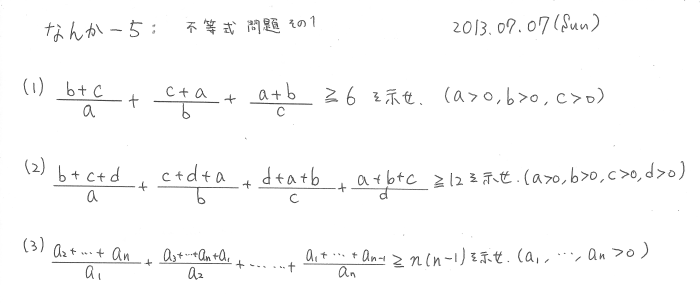 なんかー5: 不等式 問題 その1 2013.07.07(Sun)
(1) \frac{b+c}{a} + \frac{c+a}{b} + \frac{a+b}{c} ≧ 6 を示せ. (a>0, b>0, c>0)
(2) \frac{b+c+d}{a} + \frac{c+d+a}{b} + \frac{d+a+b}{c} + \frac{a+b+c}{d} ≧ 12 を示せ. (a>0, b>0, c>0, d>0)
(3) \frac{a_2+…+a_n}{a_1} + \frac{a_3+…+a_n+a_1}{a_2} + …… + \frac{a_1+…+a_{n-1}}{a_n} ≧ n(n-1) を示せ. (a_1, …, a_n >0)